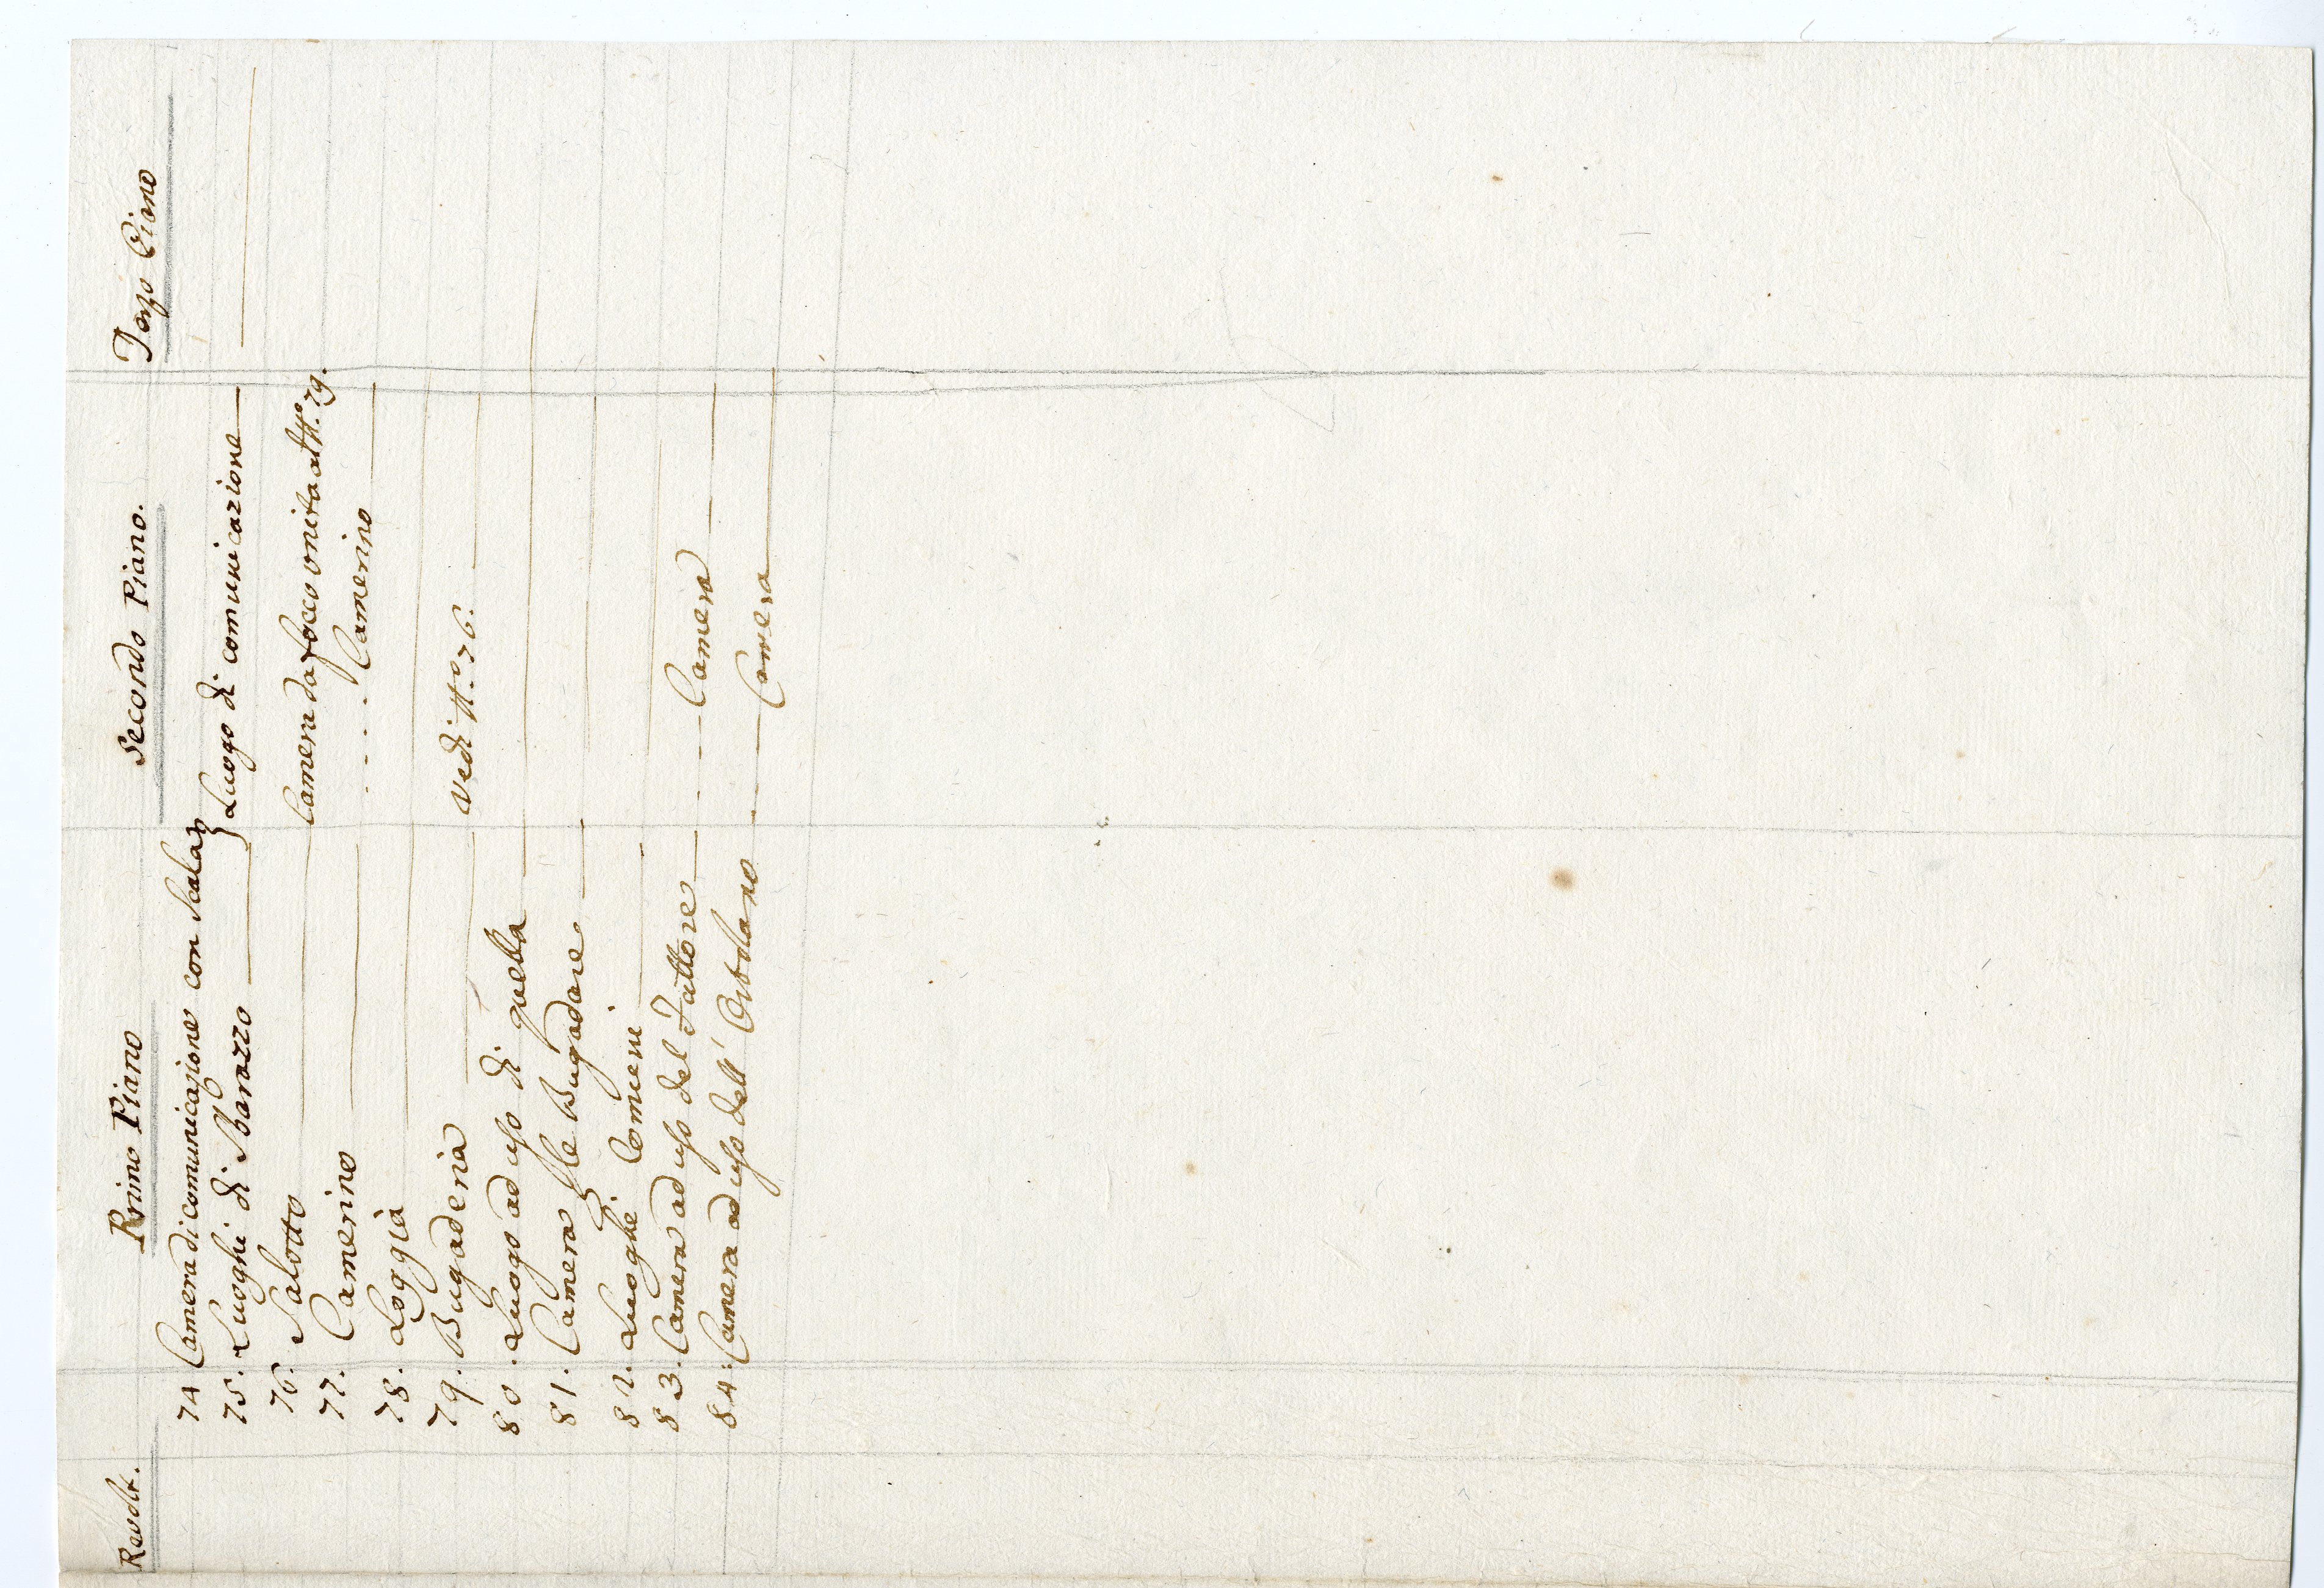 Revolt. Primo Piano Secondo Piano. Terzo Piano
74 Camera di comunicazione con Scala } Luogo di comunicazione
75. Luoghi di Sbarazzo
76. Salotto Camera da focco unita al N.º 79.
77. Camerino . - . - . Camerino
78. Loggia
79. Bugaderia Vedi N.º 76.
80. Luogo ad uso di quella
81. Camera le Bugadare
82. Luoghi Comuni
83. Camera ad uso del Fattore Camera
84. Camera ad uso dell' Ortolano Camera